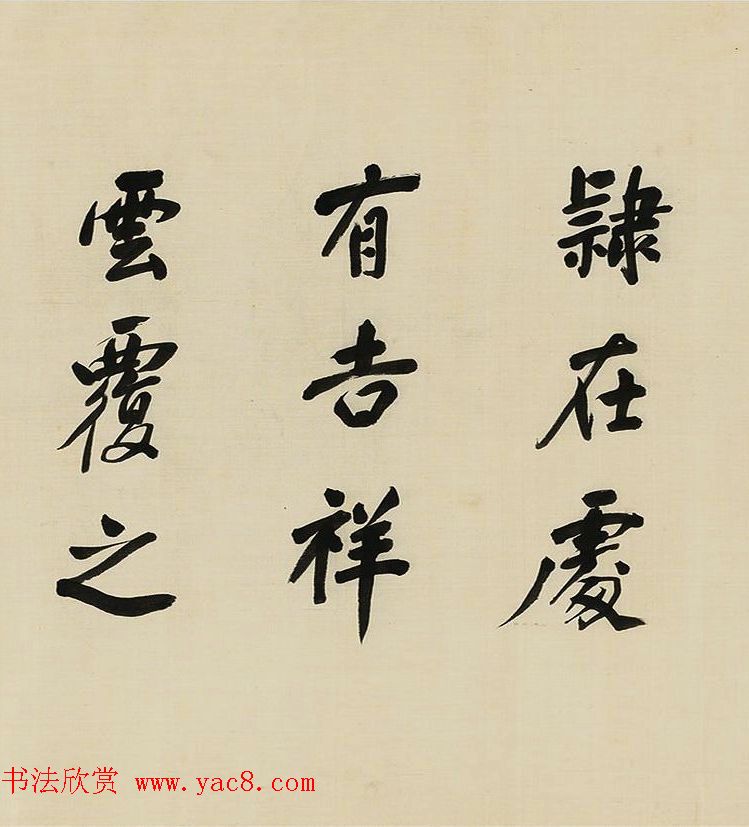 隸在處
有吉祥
雲覆之
书法欣赏 www.yac8.com